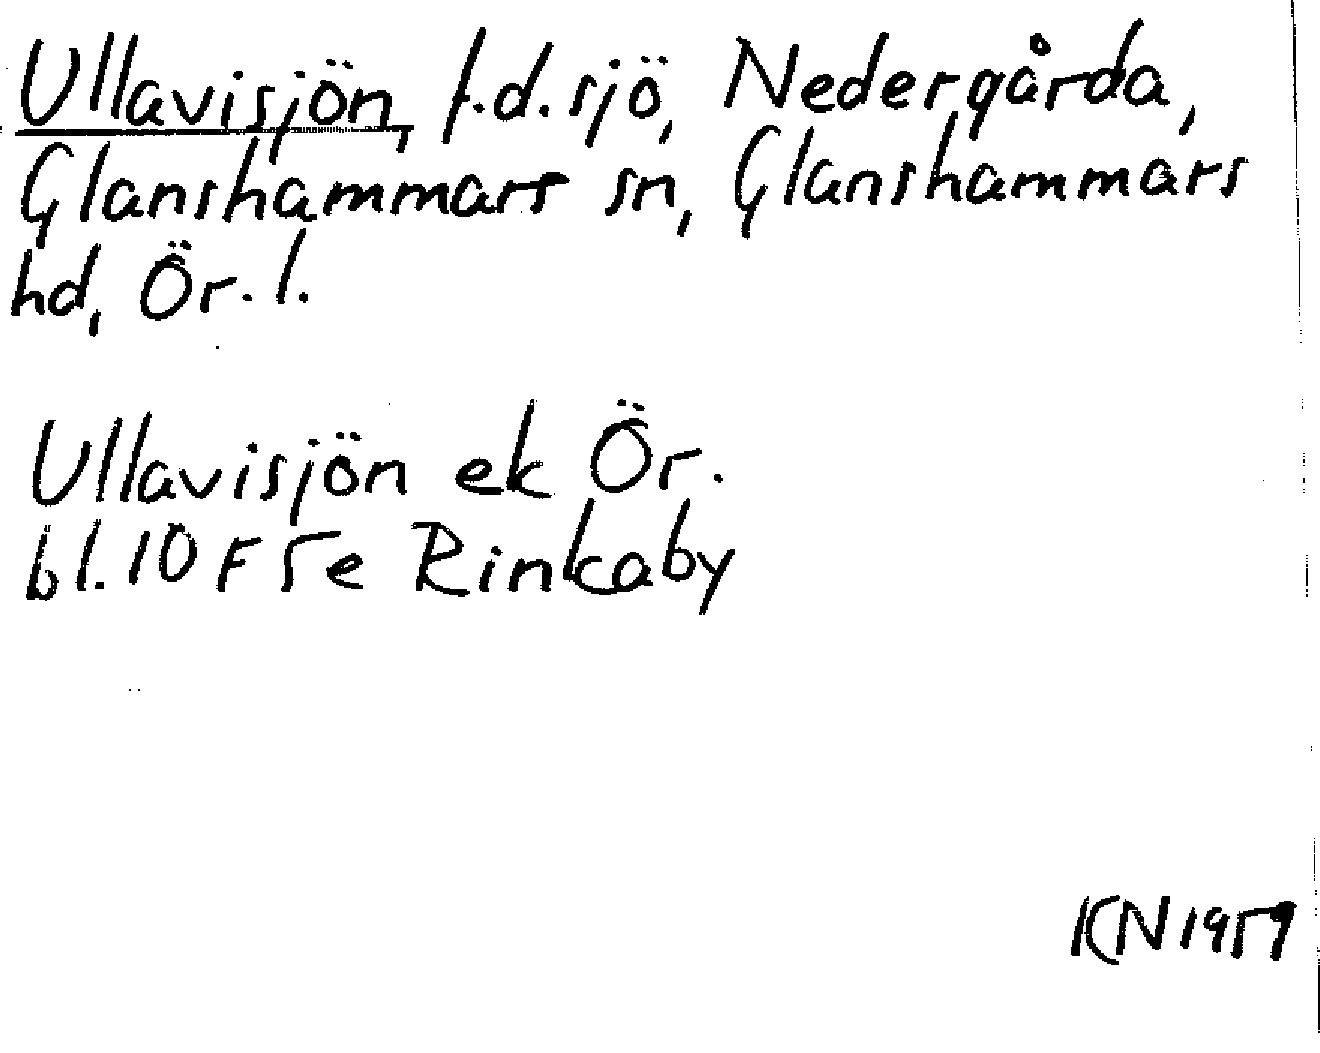 Ullavisjön, f.d. sjö, Nedergårda,
Glanshammars sn, Glanshammars
hd, Ör. l.
Ullavisjön ek Ör.
bl. 10 F 5e Rinkaby
KN 1959